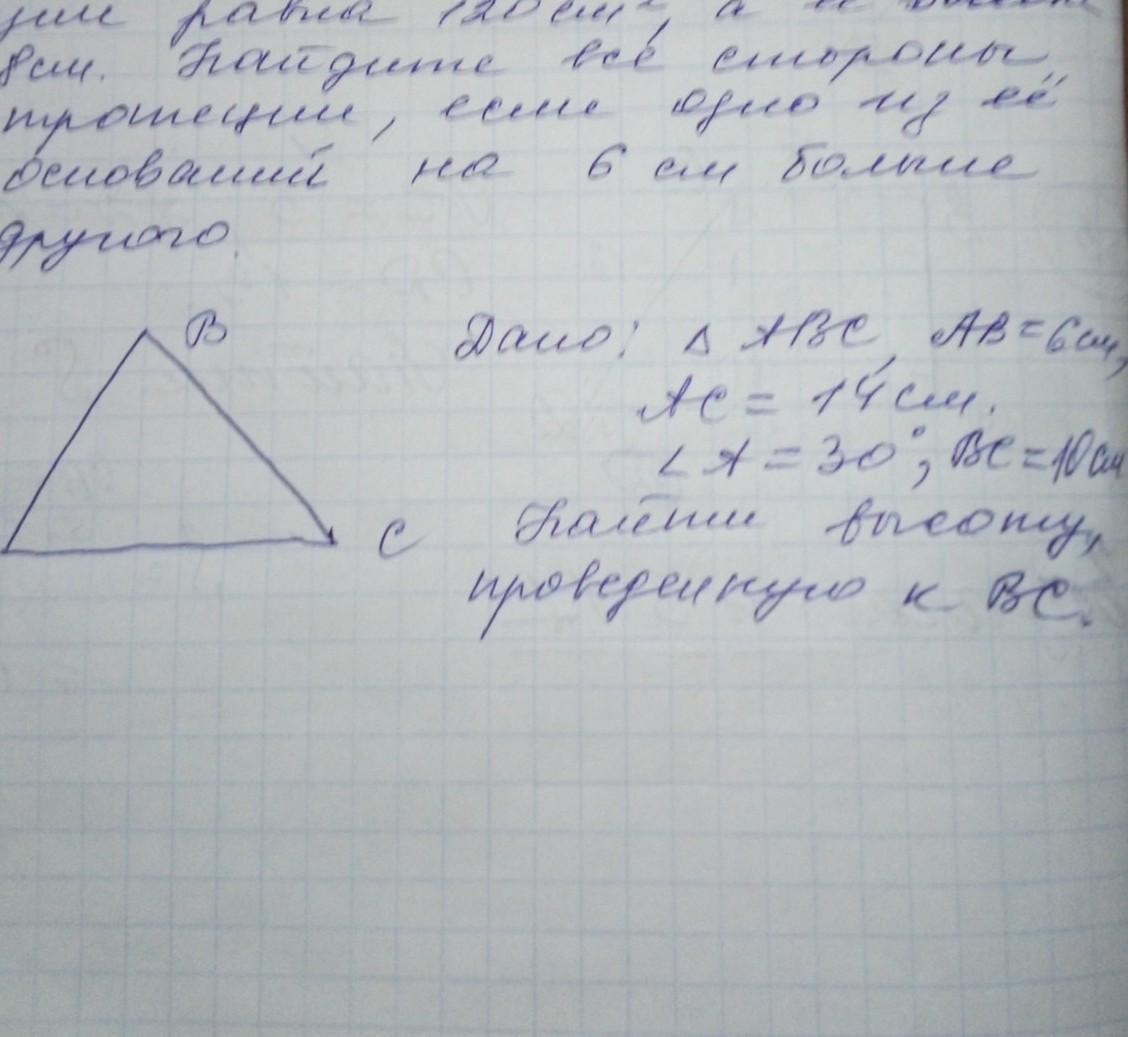 ции равна 120 см², а
8 см. Найдите все стороны
трапеции, если одно из её
оснований на 6 см больше
другого.
B
Дано: △ ABC, AB = 6 см,
AC = 14 см.
∠ A = 30°, BC = 10 см
C
Найти высоту,
проведенную к BC.